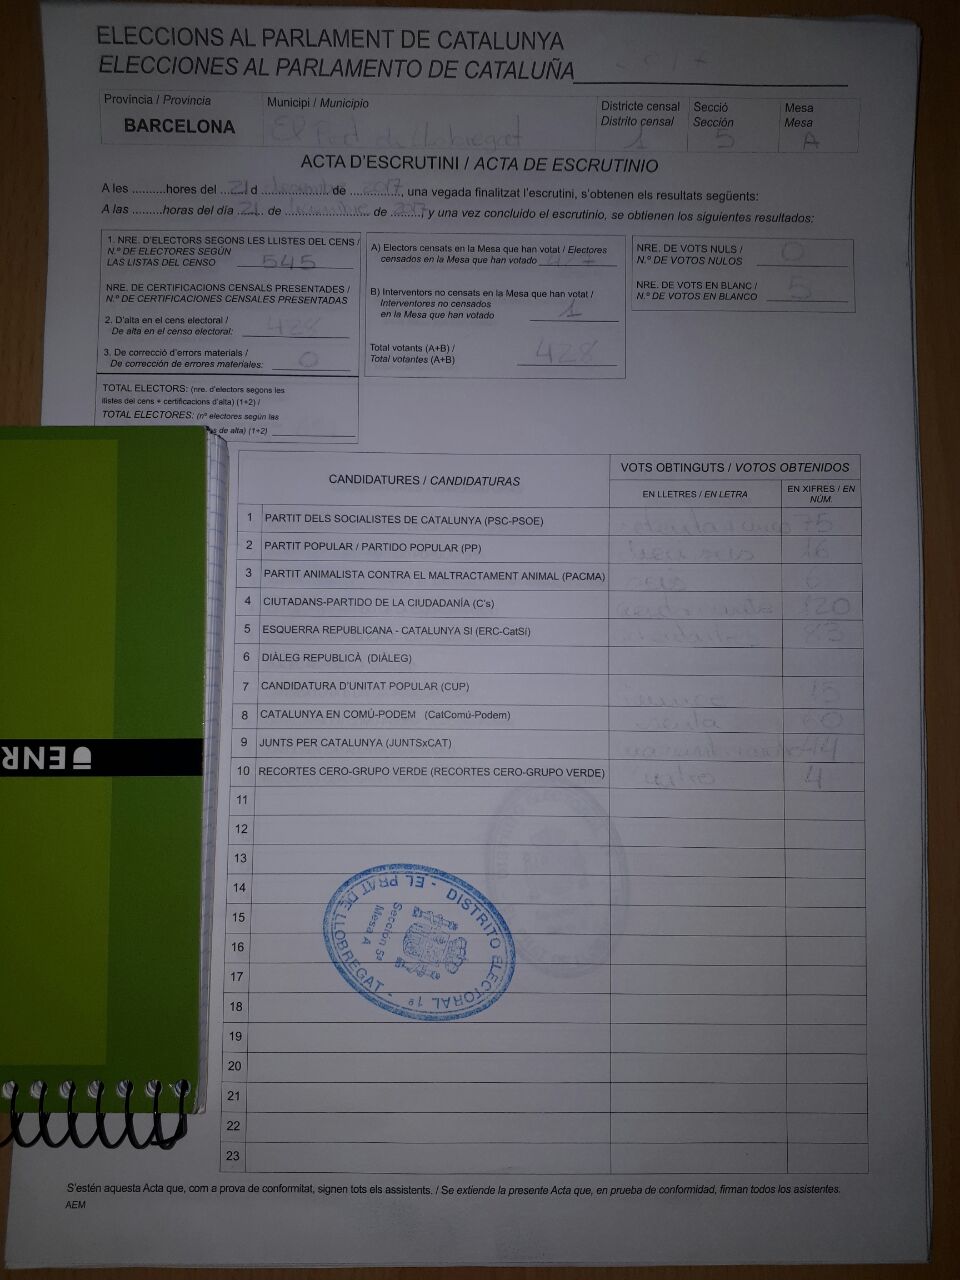 ELECCIONS AL PARLAMENT DE CATALUNYA
ELECCIONES AL PARLAMENTO DE CATALUÑA
Provincia / Provincia
BARCELONA
Municipi / Municipio
El Prat de Llobregat
Districte censal
Distrito censal
1
Secció
Sección
5
Mesa
Mesa
A
ACTA D'ESCRUTINI / ACTA DE ESCRUTINIO
A les ..........hores del ....21 d desembre de ....2017...., una vegada finalitzat l'escrutini, s'obtenen els resultats següents:
A las .........horas del día 21 de diciembre de 2017, y una vez concluido el escrutinio, se obtienen los siguientes resultados:
1. NRE. D'ELECTORS SEGONS LES LLISTES DEL CENS /
N.º DE ELECTORES SEGÚN
LAS LISTAS DEL CENSO 545
NRE. DE CERTIFICACIONS CENSALS PRESENTADES /
N.º DE CERTIFICACIONES CENSALES PRESENTADAS
2. D'alta en el cens electoral /
De alta en el censo electoral: 428
3. De correcció d'errors materials /
De corrección de errores materiales: 0
TOTAL ELECTORS: (nre. d'electors segons les
llistes del cens + certificacions d'alta) (1+2) /
TOTAL ELECTORES: (nº electores según las
s de alta) (1+2)
A) Electors censats en la Mesa que han votat / Electores
censados en la Mesa que han votado
B) Interventors no censats en la Mesa que han votat /
Interventores no censados
en la Mesa que han votado 1
Total votants (A+B) /
Total votantes (A+B) 428
NRE. DE VOTS NULS /
N.º DE VOTOS NULOS 0
NRE. DE VOTS EN BLANC /
N.º DE VOTOS EN BLANCO 5
CANDIDATURES / CANDIDATURAS
VOTS OBTINGUTS / VOTOS OBTENIDOS
EN LLETRES / EN LETRA
EN XIFRES / EN
NÚM.
1 PARTIT DELS SOCIALISTES DE CATALUNYA (PSC-PSOE) 75
2 PARTIT POPULAR / PARTIDO POPULAR (PP) 16
3 PARTIT ANIMALISTA CONTRA EL MALTRACTAMENT ANIMAL (PACMA) 6
4 CIUTADANS-PARTIDO DE LA CIUDADANÍA (C's) 120
5 ESQUERRA REPUBLICANA - CATALUNYA SI (ERC-CatSí)
6 DIÀLEG REPUBLICÀ (DIÀLEG)
7 CANDIDATURA D'UNITAT POPULAR (CUP) 15
8 CATALUNYA EN COMÚ-PODEM (CatComú-Podem) 60
9 JUNTS PER CATALUNYA (JUNTSxCAT) 44
10 RECORTES CERO-GRUPO VERDE (RECORTES CERO-GRUPO VERDE) 4
11
12
13
14
15
16
17
18
19
20
21
22
23
DISTRITO ELECTORAL 1º - EL PRAT DE LLOBREGAT -
Sección 5ª
Mesa A
ENR
S'estén aquesta Acta que, com a prova de conformitat, signen tots els assistents. / Se extiende la presente Acta que, en prueba de conformidad, firman todos los asistentes.
AEM